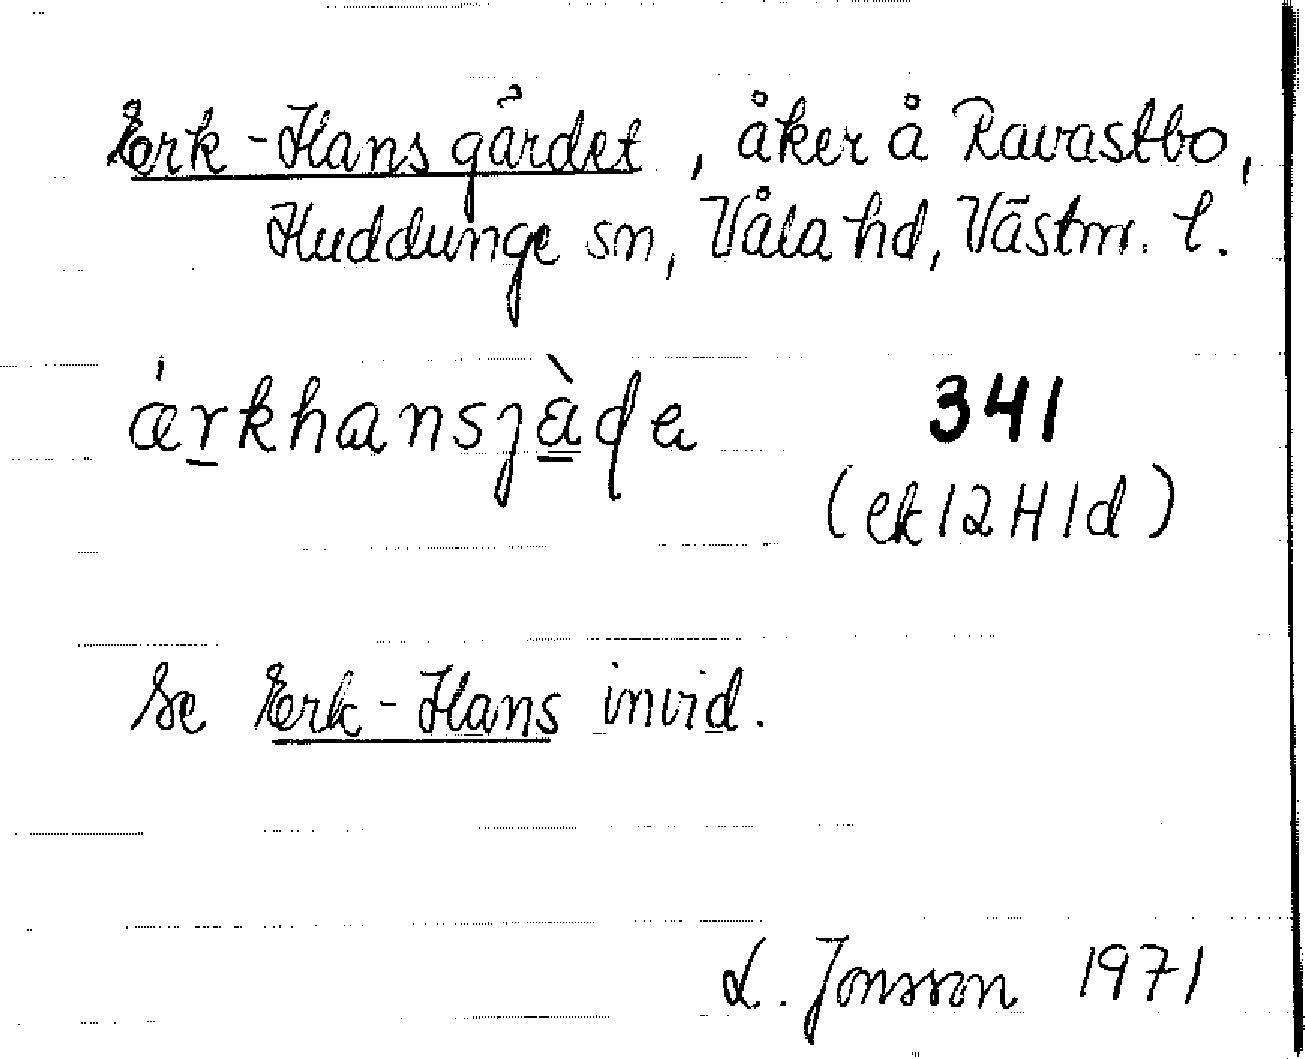 Erk-Hansgärdet, åker å Ravastbo,
Huddunge sn, Våla hd, Västm. l.
ærkhansjàde 341
(ek 12H1d)
Se Erk-Hans invid.
L. Jonsson 1971